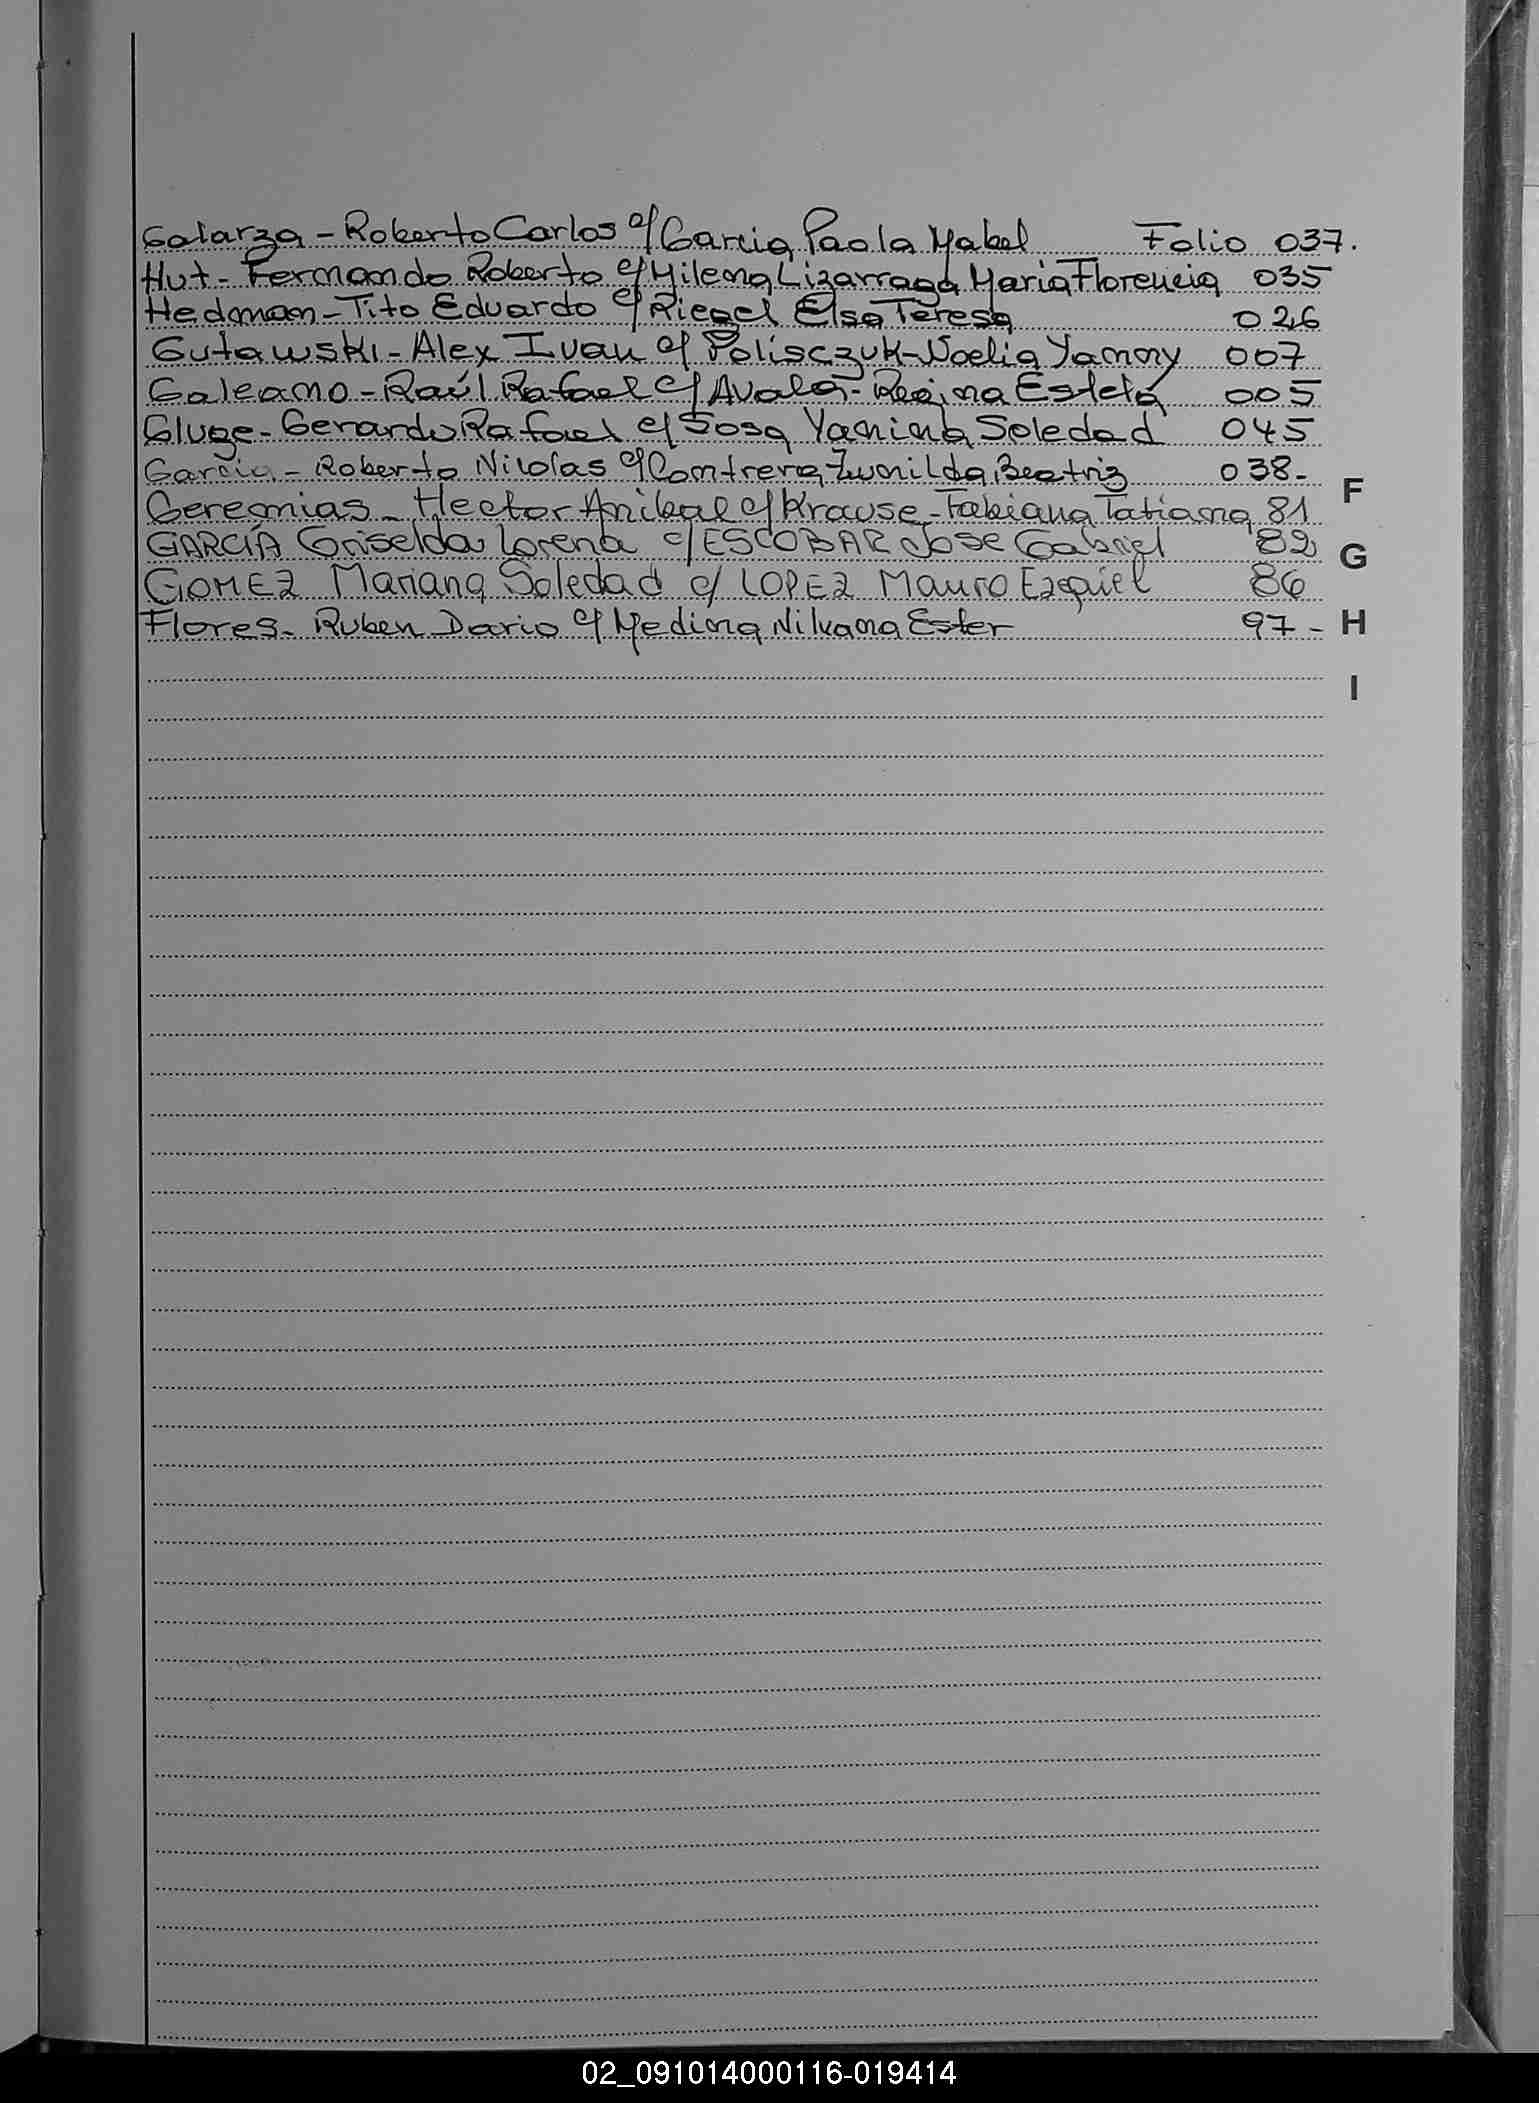 Galarza - Roberto Carlos c/ Garcia Paola Mabel Folio 037.
Hut - Fernando Roberto c/ Milena Lizarraga Maria Florencia 035
Hedman - Tito Eduardo c/ Riegel Elsa Teresa 026
Gutawski - Alex Ivan c/ Polisczuk - Noelia Yanny 007
Galeano - Raúl Rafael c/ Avalo - Regina Estela 005
Gluge - Gerardo Rafael c/ Sosa Yanina Soledad 045
Garcia - Roberto Nicolas c/ Contrera Zunilda Beatriz 038-
Geremias - Hector Anibal c/ Krause - Fabiana Tatiana 81
GARCÍA Griselda Lorena c/ ESCOBAR Jose Gabriel 82
GOMEZ Mariana Soledad c/ LOPEZ Mauro Ezequiel 86
Flores - Ruben Dario c/ Medina Nilvana Ester 97-
F
G
H
I
02_091014000116-019414